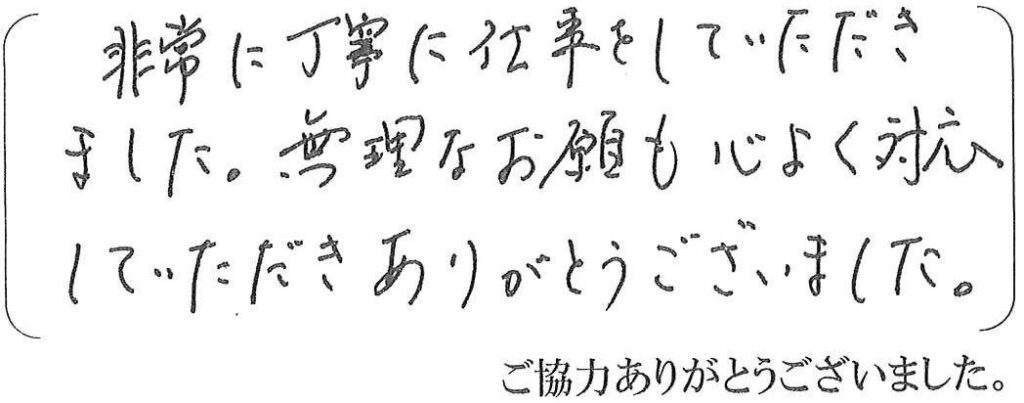 非常に丁寧に仕事をしていただき
ました。無理なお願も心よく対応
していただきありがとうございました。
ご協力ありがとうございました。